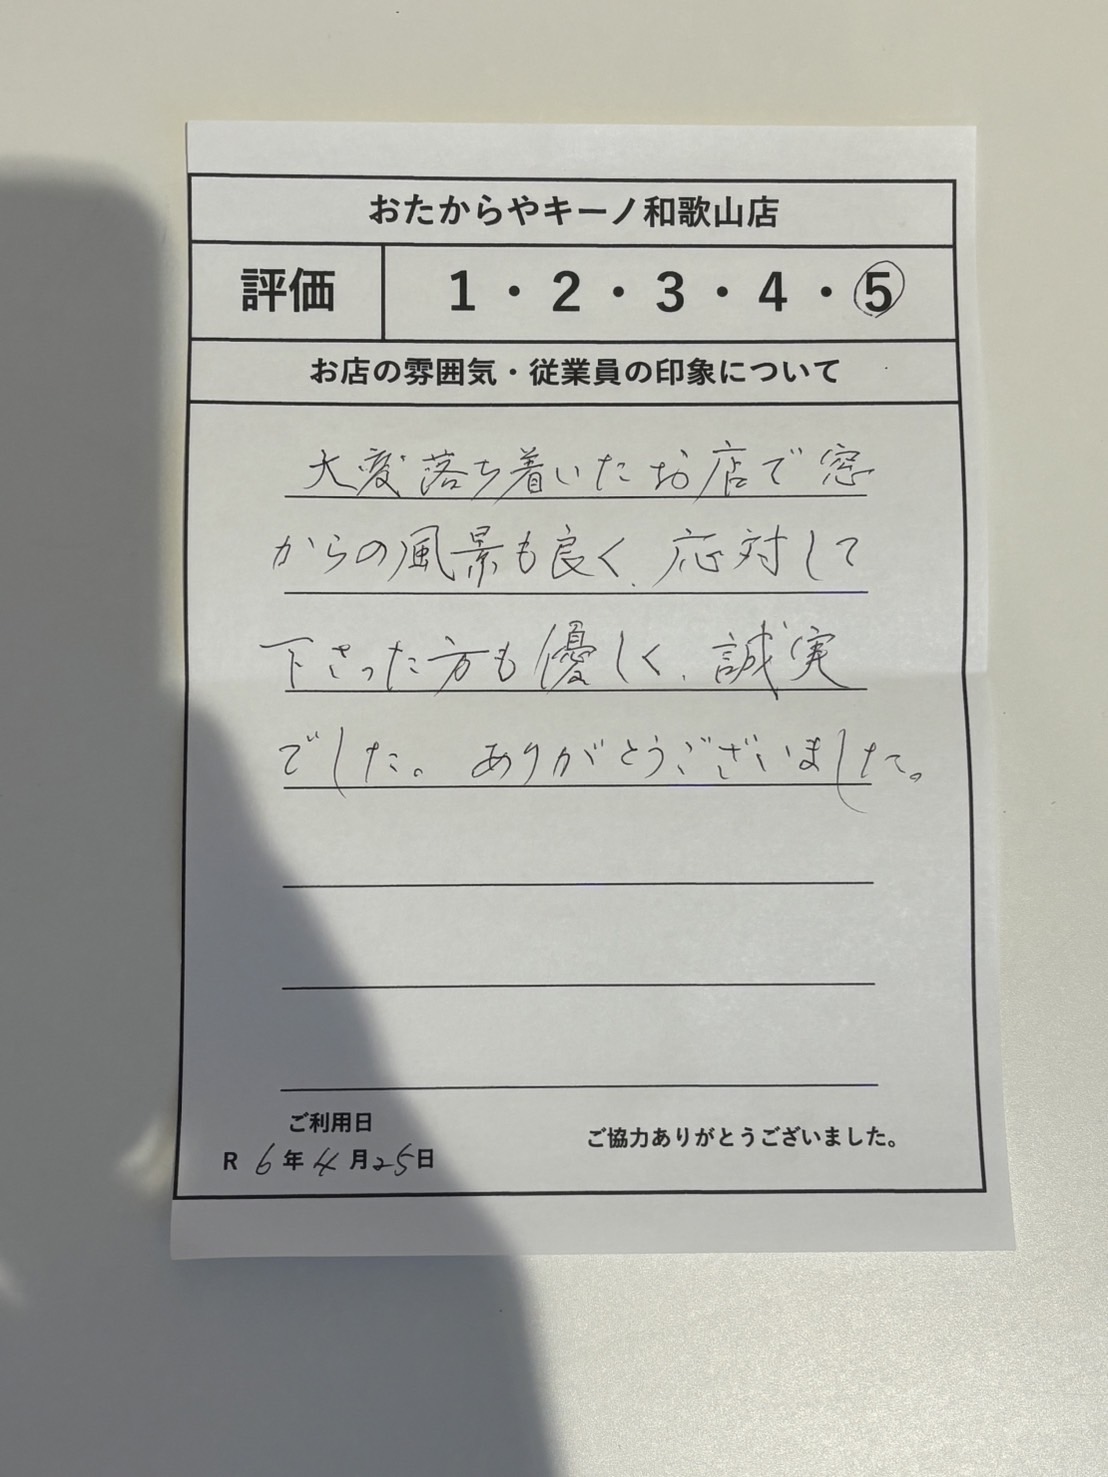 おたからやキーノ和歌山店
評価 1・2・3・4・5
お店の雰囲気・従業員の印象について
大変落ち着いたお店で窓
からの風景も良く、応対して
下さった方も優しく、誠実
でした。ありがとうございました。
ご利用日
R 6年4月25日
ご協力ありがとうございました。